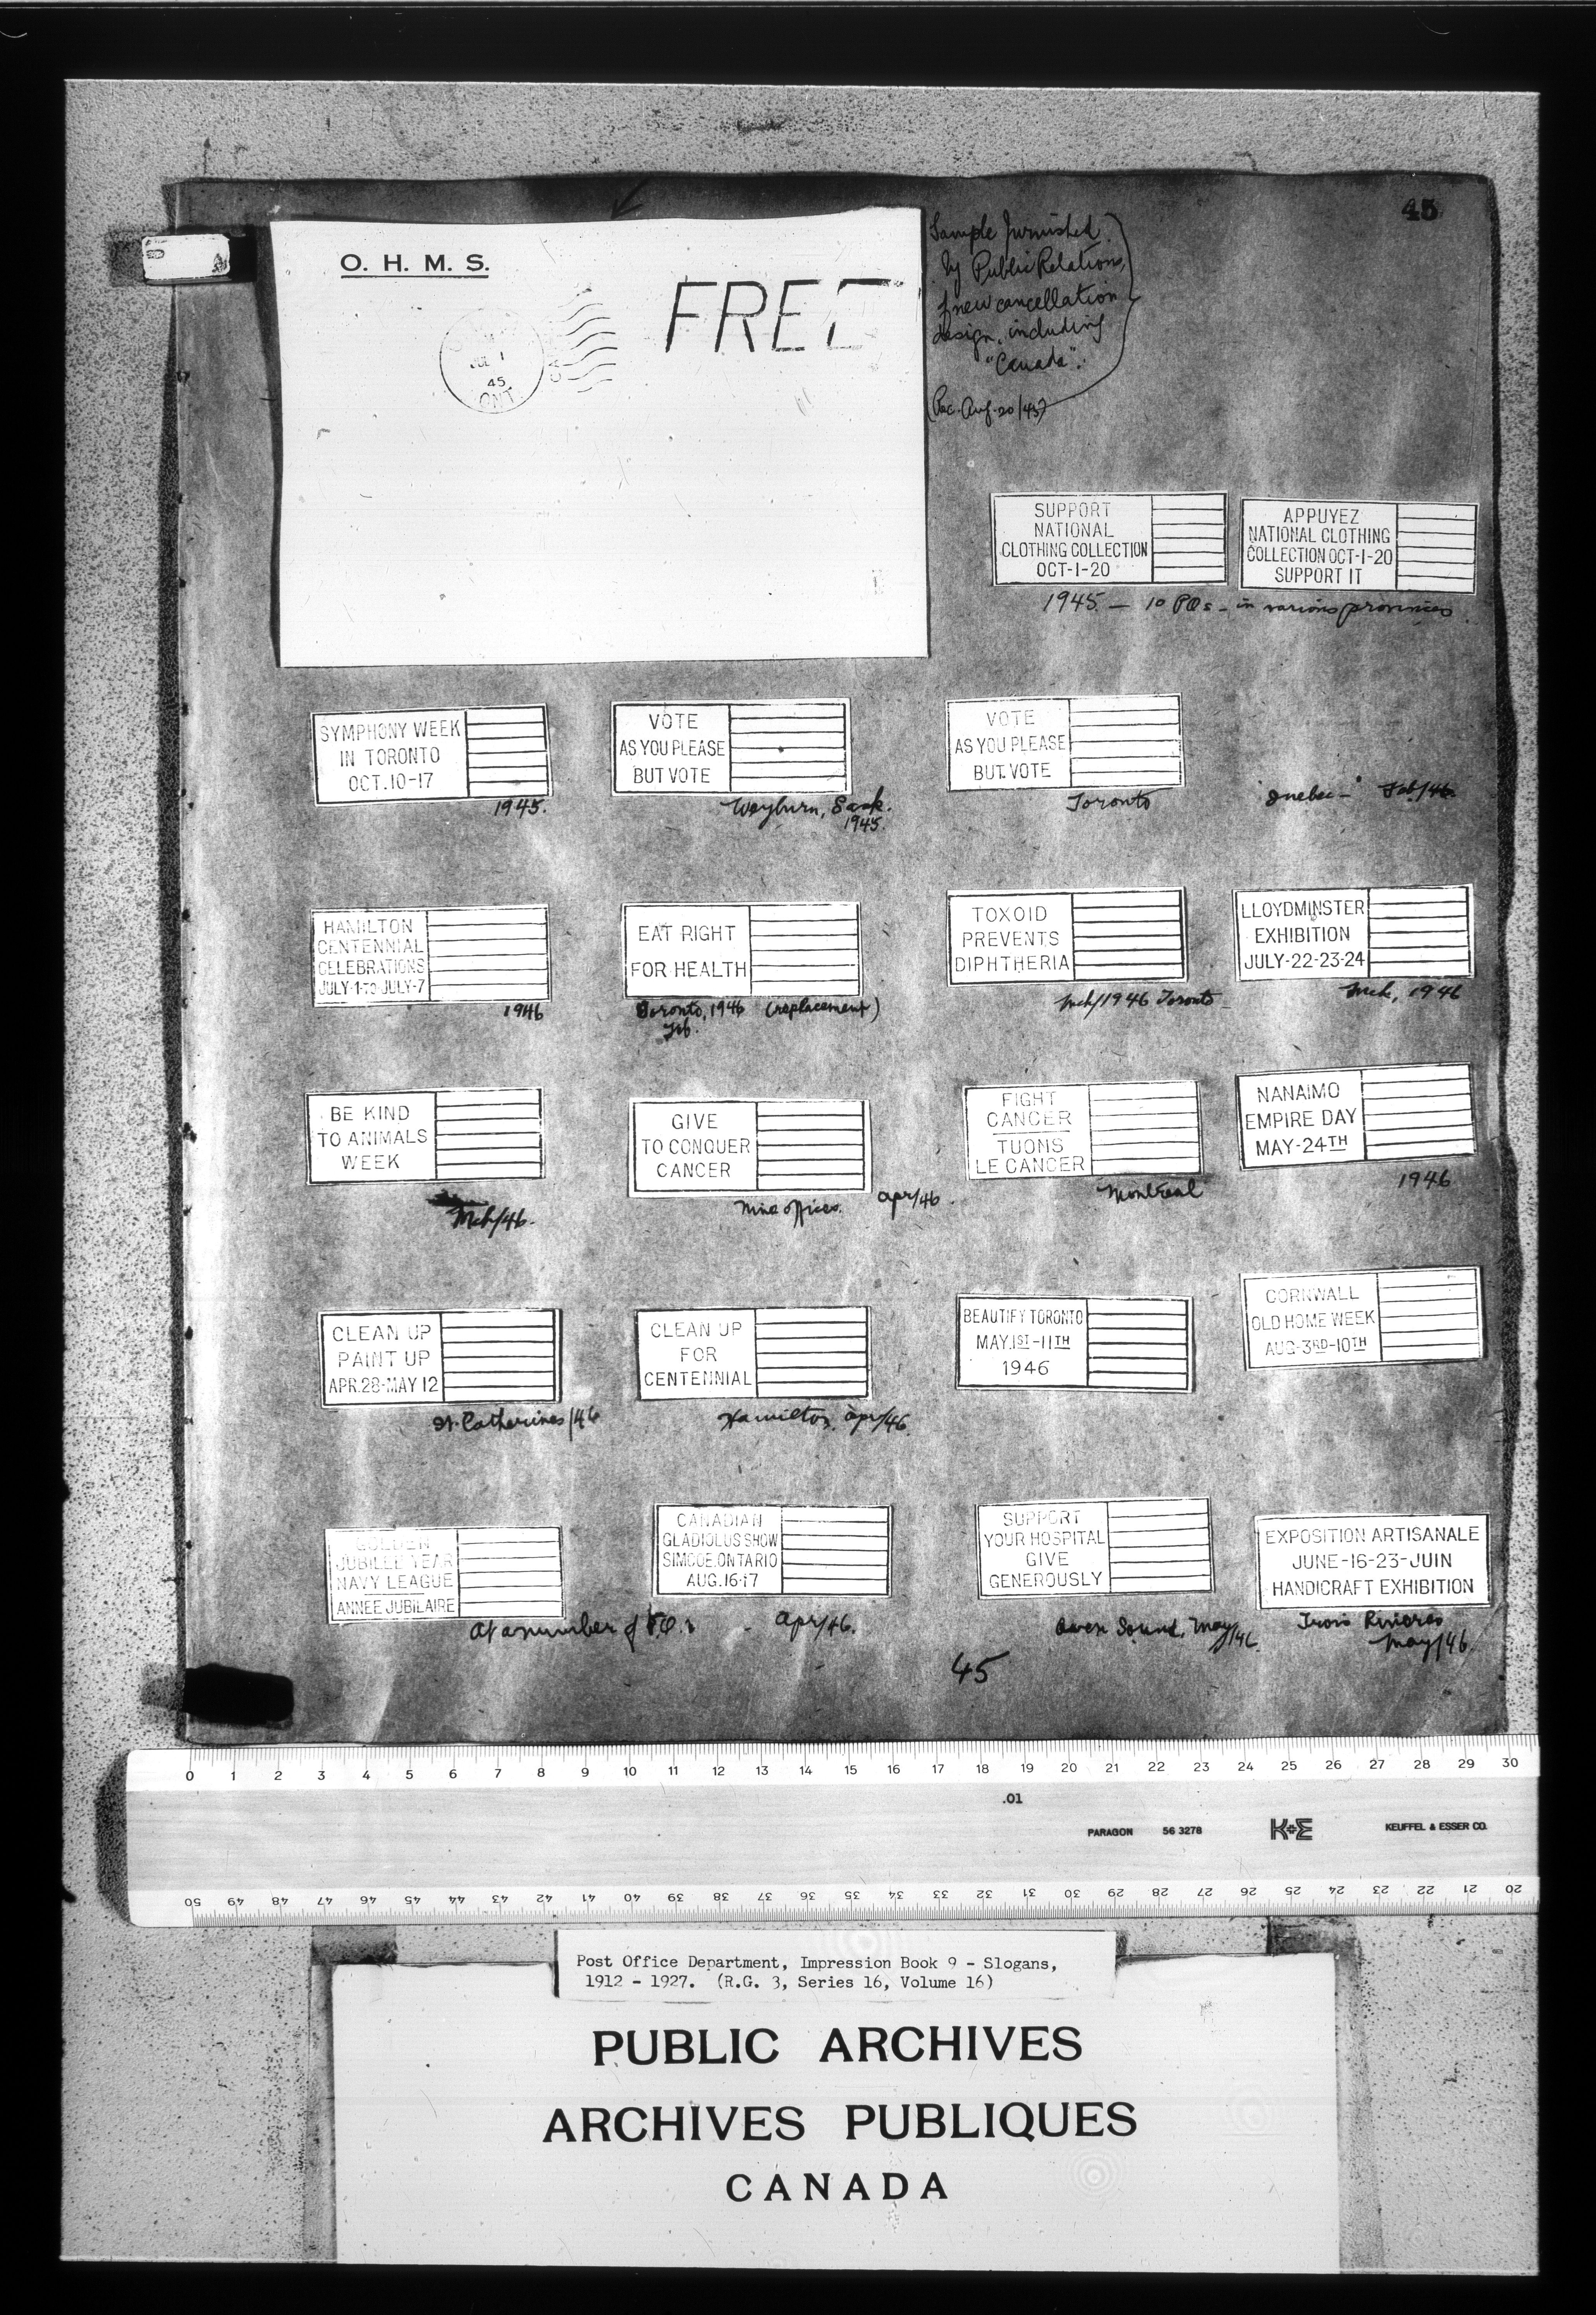 45
O. H. M. S.
FREE
JUL 1
45
ONT.
CA
Sample furnished
by Public Relations,
of new cancellation
design, including
"Canada".
(Rec. Aug. 20/45)
SUPPORT
NATIONAL
CLOTHING COLLECTION
OCT-1-20
APPUYEZ
NATIONAL CLOTHING
COLLECTION OCT-1-20
SUPPORT IT
1945. — 10 POs - in various provinces
SYMPHONY WEEK
IN TORONTO
OCT. 10-17
1945.
VOTE
AS YOU PLEASE
BUT VOTE
Weyburn, Sask.
1945.
VOTE
AS YOU PLEASE
BUT VOTE
Toronto
Quebec - Feb/46
HAMILTON
CENTENNIAL
CELEBRATIONS
JULY-1-TO-JULY-7
1946
EAT RIGHT
FOR HEALTH
Toronto, 1946 (replacement)
Feb.
TOXOID
PREVENTS
DIPHTHERIA
Mch/1946 Toronto
LLOYDMINSTER
EXHIBITION
JULY-22-23-24
Mch, 1946
BE KIND
TO ANIMALS
WEEK
Mch/46.
GIVE
TO CONQUER
CANCER
Nine offices. Apr/46
FIGHT
CANCER
TUONS
LE CANCER
Montreal
NANAIMO
EMPIRE DAY
MAY-24TH
1946
CLEAN UP
PAINT UP
APR.28-MAY 12
St. Catherines/46
CLEAN UP
FOR
CENTENNIAL
Hamilton, Apr/46
BEAUTIFY TORONTO
MAY.1ST-11TH
1946
CORNWALL
OLD HOME WEEK
AUG-3RD-10TH
GOLDEN
JUBILEE YEAR
NAVY LEAGUE
ANNEE JUBILAIRE
At a number of P.O.s
CANADIAN
GLADIOLUS SHOW
SIMCOE.ONTARIO
AUG.16-17
Apr/46.
SUPPORT
YOUR HOSPITAL
GIVE
GENEROUSLY
Owen Sound, May/46.
EXPOSITION ARTISANALE
JUNE-16-23-JUIN
HANDICRAFT EXHIBITION
Trois Rivieres
May/46.
45
0 1 2 3 4 5 6 7 8 9 10 11 12 13 14 15 16 17 18 19 20 21 22 23 24 25 26 27 28 29 30
.01
PARAGON 56 3278 K+E KEUFFEL & ESSER CO.
50 49 48 47 46 45 44 43 42 41 40 39 38 37 36 35 34 33 32 31 30 29 28 27 26 25 24 23 22 21 20
Post Office Department, Impression Book 9 - Slogans,
1912 - 1927. (R.G. 3, Series 16, Volume 16)
PUBLIC ARCHIVES
ARCHIVES PUBLIQUES
CANADA